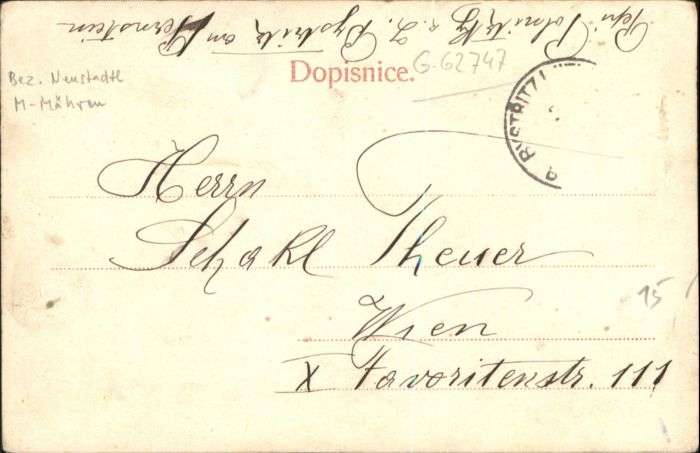 Bystritz am Pernstein
Dopisnice.
G-62747
Bez. Neustadtl
M-Mähren
BYSTRITZ
Herrn
Schakl Theuer
Wien
X Favoritenstr. 111
15